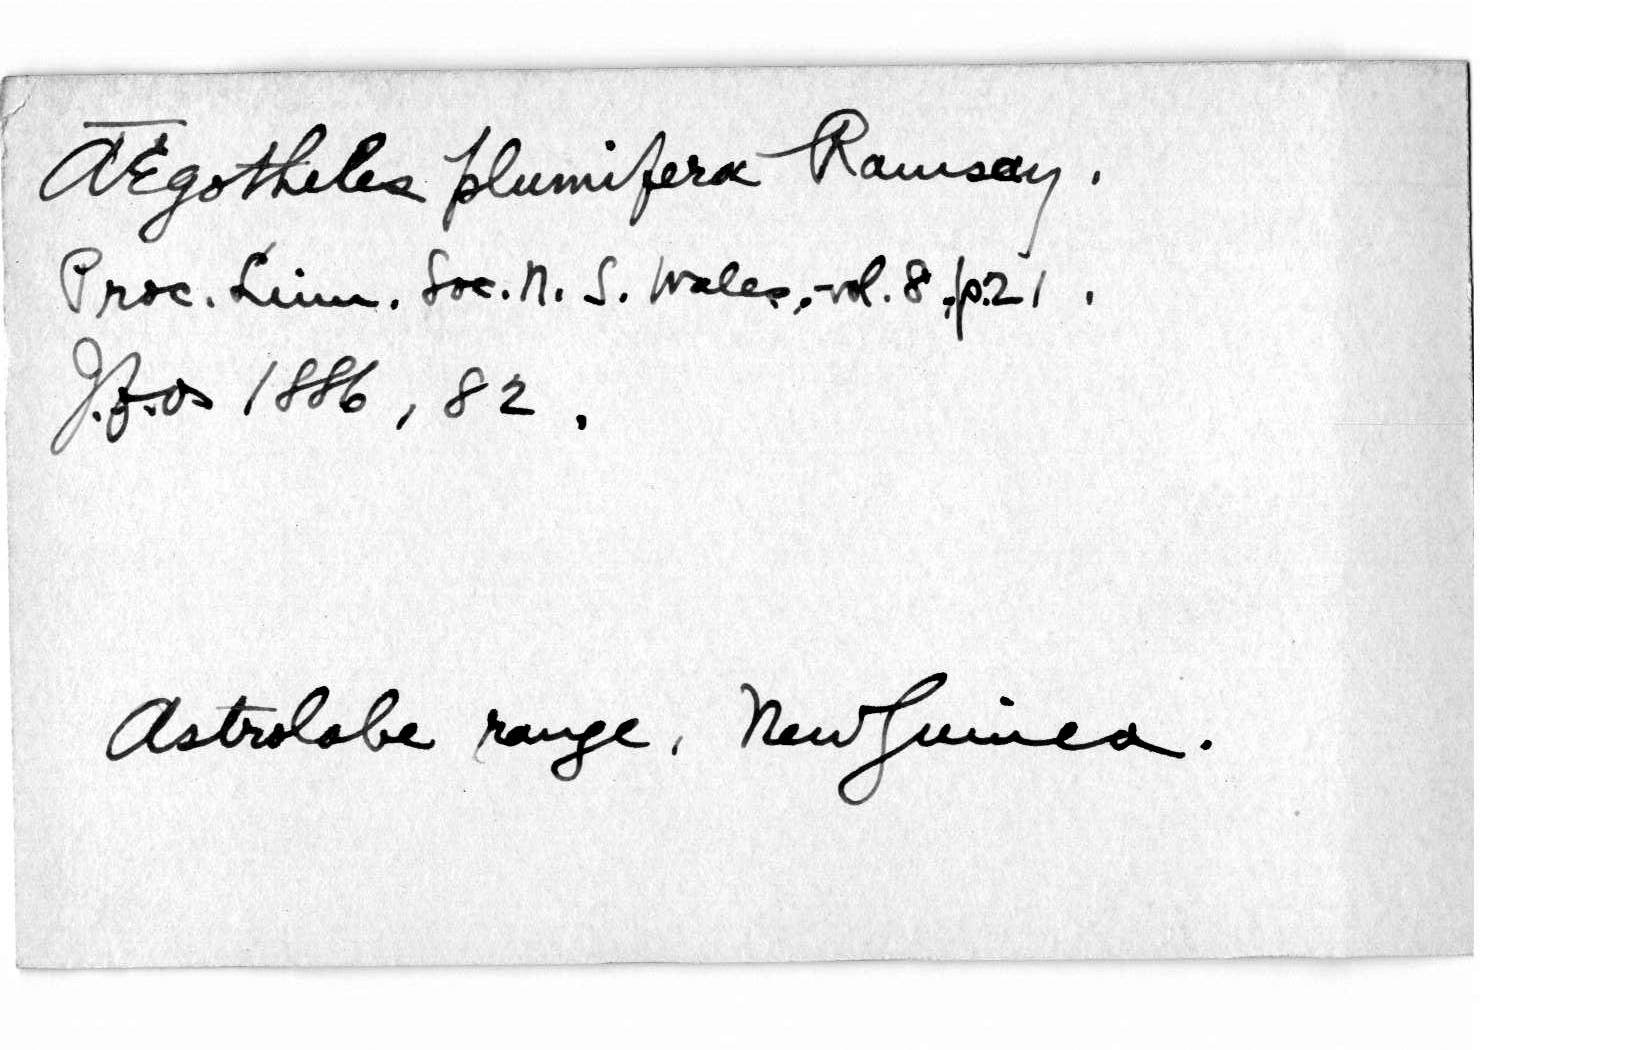 Ægotheles plumifera Ramsay.
Proc. Linn. Soc. N. S. Wales, vol. 8, p. 21.
J.f.O. 1886, 82.
Astrolabe range, New Guinea.